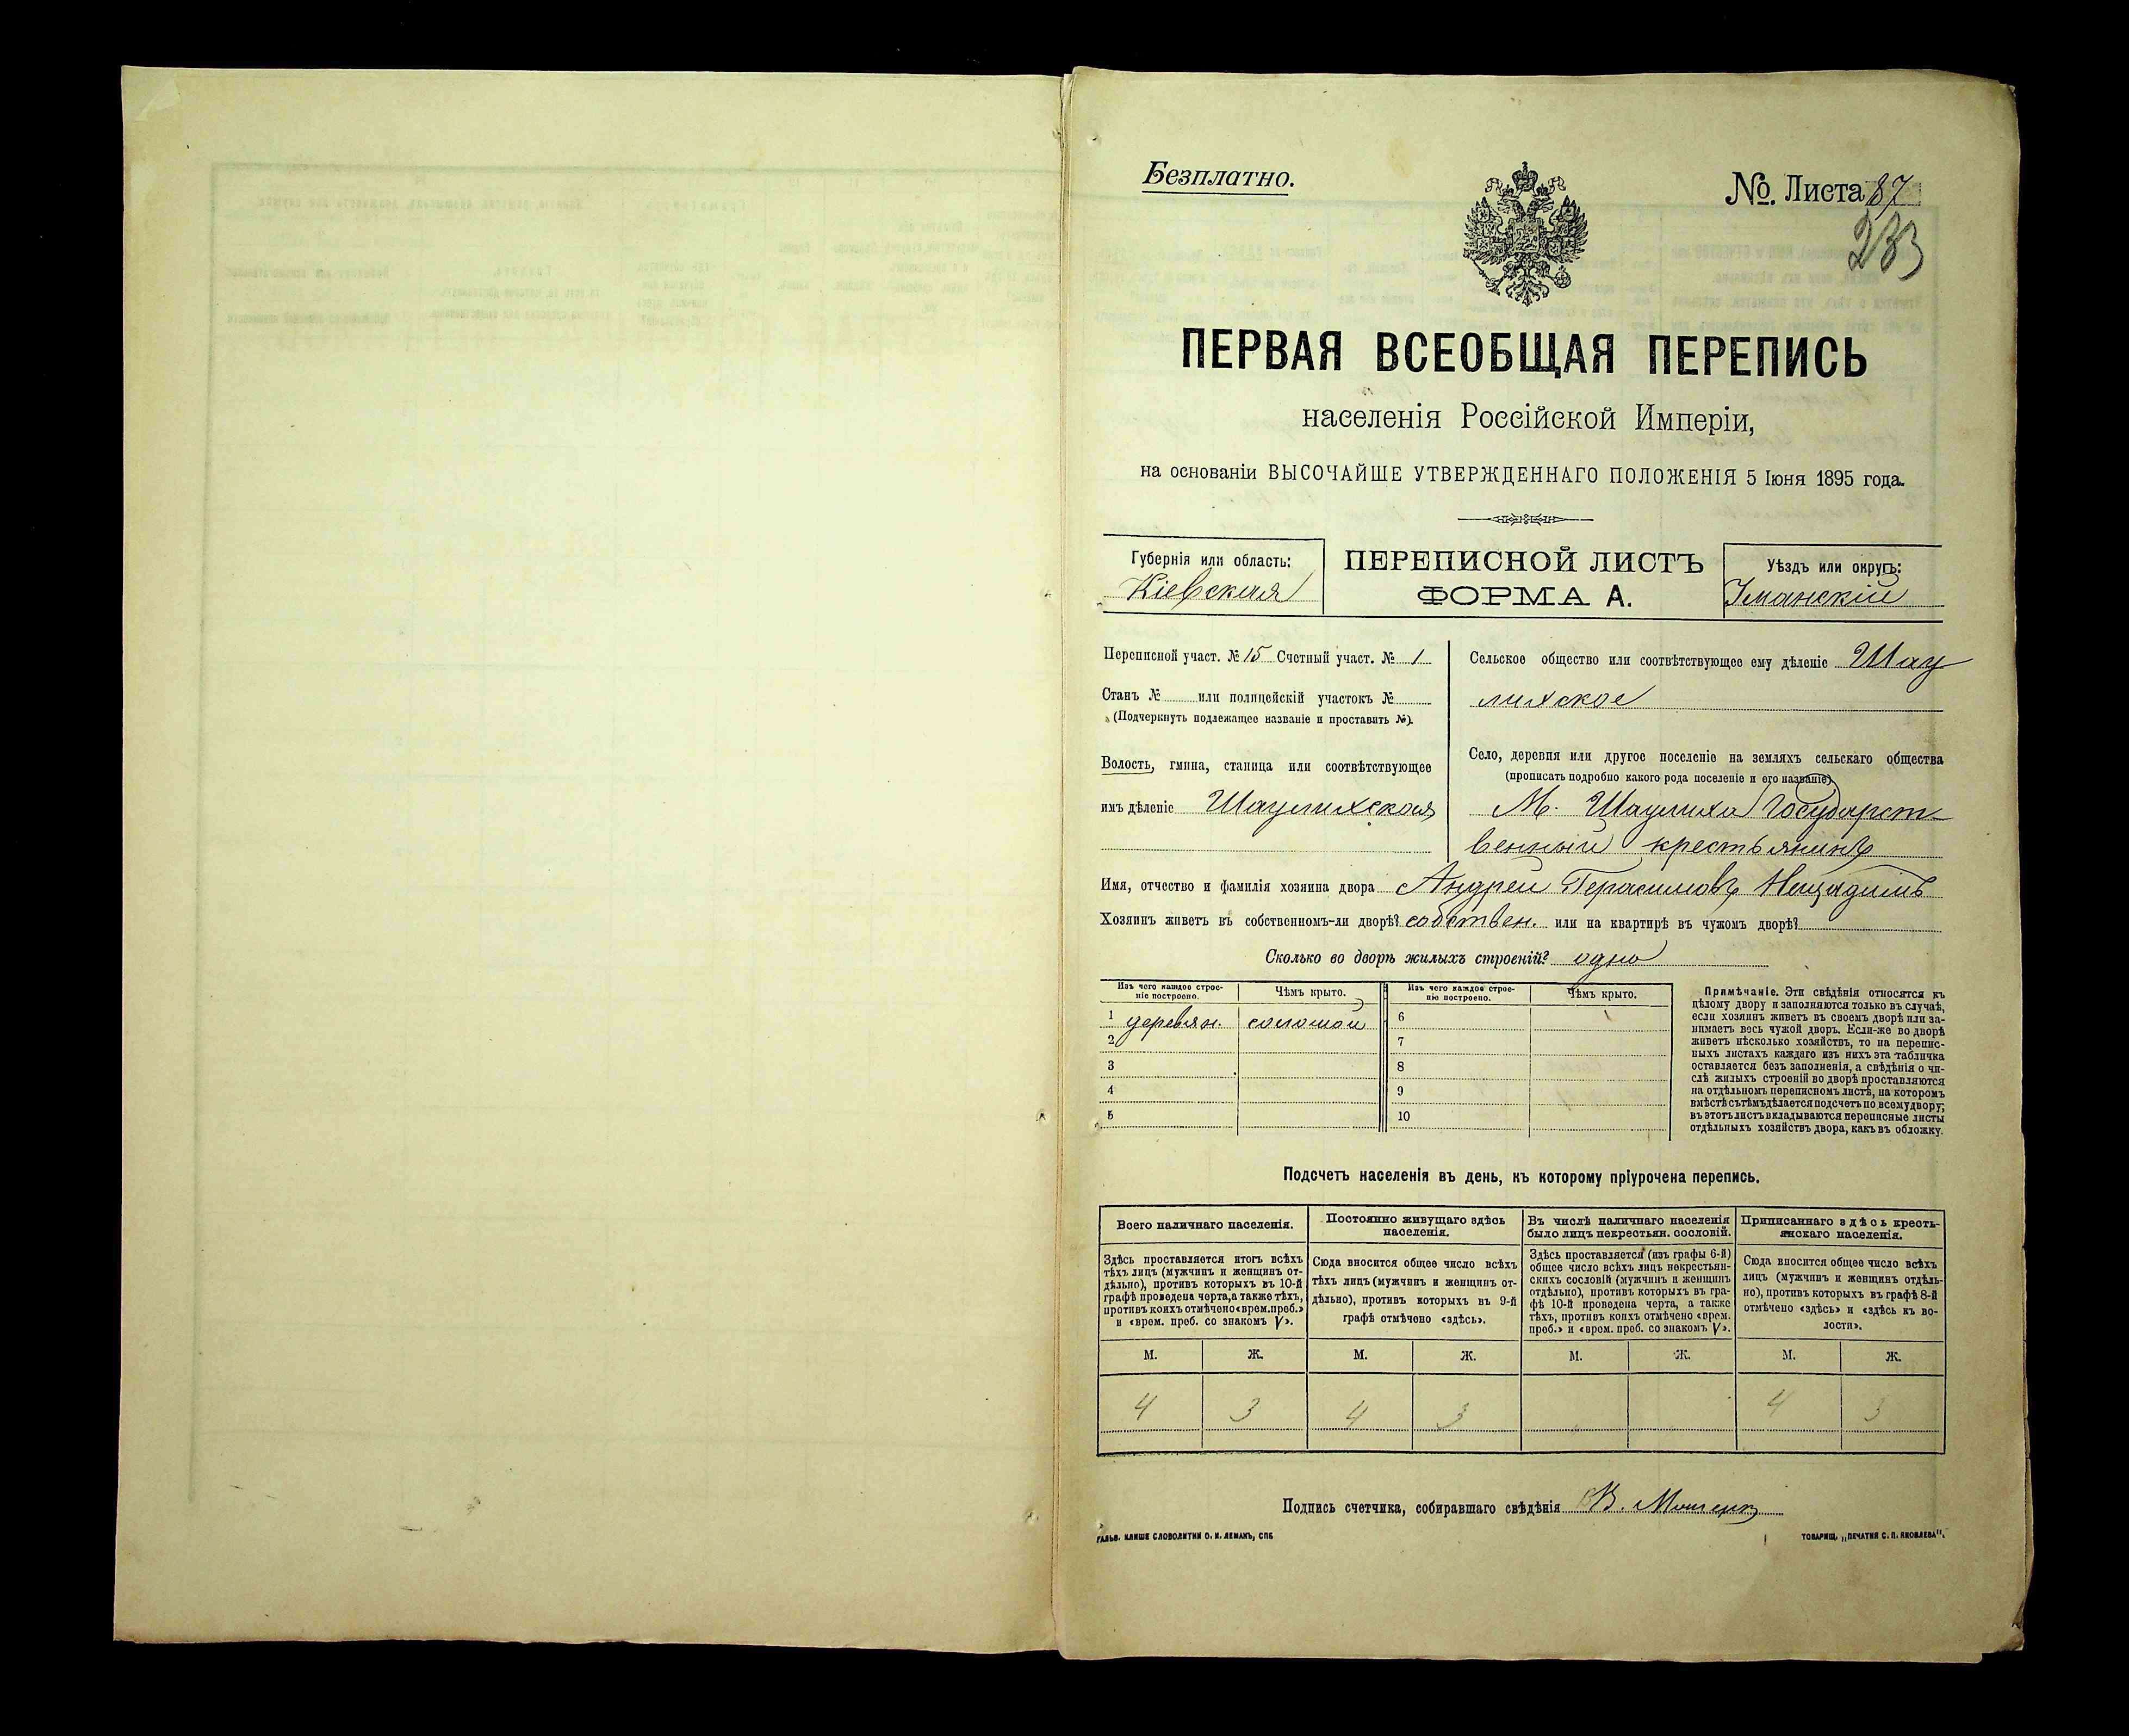 Безплатно.
№. Листа 87
233
ПЕРВАЯ ВСЕОБЩАЯ ПЕРЕПИСЬ
населенія Россійской Имперіи,
на основаніи ВЫСОЧАЙШЕ УТВЕРЖДЕННАГО ПОЛОЖЕНІЯ 5 Іюня 1895 года.
Губернія или область:
Кіевская
ПЕРЕПИСНОЙ ЛИСТЪ
ФОРМА А.
Уѣздъ или округъ:
Уманскій
Переписной участ. № 15 Счетный участ. № 1
Станъ № или полицейскій участокъ №
(Подчеркнуть подлежащее названіе и проставить №).
Волость, гмина, станица или соотвѣтствующее
имъ дѣленіе Шаулихская
Сельское общество или соотвѣтствующее ему дѣленіе Шау
лихское
Село, деревня или другое поселеніе на земляхъ сельскаго общества
(прописать подробно какого рода поселеніе и его названіе)
М. Шаулиха Государст-
венный крестьянинъ
Имя, отчество и фамилія хозяина двора Андрей Герасимовъ
Хозяинъ живетъ въ собственномъ-ли дворѣ? собствен. или на квартирѣ въ чужомъ дворѣ?
Сколько во дворѣ жилыхъ строеній? одно
Изъ чего каждое строе-
ніе построено.
Чѣмъ крыто.
Изъ чего каждое строе-
ніе построено.
Чѣмъ крыто.
1 деревян. соломой 6
2 7
3 8
4 9
5 10
Примѣчаніе. Эти свѣдѣнія относятся къ
цѣлому двору и заполняются только въ случаѣ,
если хозяинъ живетъ въ своемъ дворѣ или за-
нимаетъ весь чужой дворъ. Если-же во дворѣ
живетъ нѣсколько хозяйствъ, то на перепис-
ныхъ листахъ каждаго изъ нихъ эта табличка
оставляется безъ заполненія, а свѣдѣнія о чи-
слѣ жилыхъ строеній во дворѣ проставляются
на отдѣльномъ переписномъ листѣ, на которомъ
вмѣстѣ съ тѣмъ дѣлается подсчетъ по всему двору;
въ этотъ листъ вкладываются переписные листы
отдѣльныхъ хозяйствъ двора, какъ въ обложку.
Подсчетъ населенія въ день, къ которому пріурочена перепись.
Всего наличнаго населенія.
Здѣсь проставляется итогъ всѣхъ
тѣхъ лицъ (мужчинъ и женщинъ от-
дѣльно), противъ которыхъ въ 10-й
графѣ проведена черта, а также тѣхъ,
противъ коихъ отмѣчено «врем. преб.»
и «врем. преб. со знакомъ V».
Постоянно живущаго здѣсь
населенія.
Сюда вносится общее число всѣхъ
тѣхъ лицъ (мужчинъ и женщинъ от-
дѣльно), противъ которыхъ въ 9-й
графѣ отмѣчено «здѣсь».
Въ числѣ наличнаго населенія
было лицъ некрестьян. сословій.
Здѣсь проставляется (изъ графы 6-й)
общее число всѣхъ лицъ некрестьян-
скихъ сословій (мужчинъ и женщинъ
отдѣльно), противъ которыхъ въ гра-
фѣ 10-й проведена черта, а также
тѣхъ, противъ коихъ отмѣчено «врем.
преб.» и «врем. преб. со знакомъ V».
Приписаннаго здѣсь кресть-
янскаго населенія.
Сюда вносится общее число всѣхъ
лицъ (мужчинъ и женщинъ отдѣль-
но), противъ которыхъ въ графѣ 8-й
отмѣчено «здѣсь» и «здѣсь къ во-
лости».
М. Ж. М. Ж. М. Ж. М. Ж.
4 3 4 3 4 3
Подпись счетчика, собиравшаго свѣдѣнія В.
ГАЛЬВ. КЛИШЕ СЛОВОЛИТНИ О. И. ЛЕМАНЪ, СПБ
ТОВАРИЩ. „ПЕЧАТНЯ С. П. ЯКОВЛЕВА".